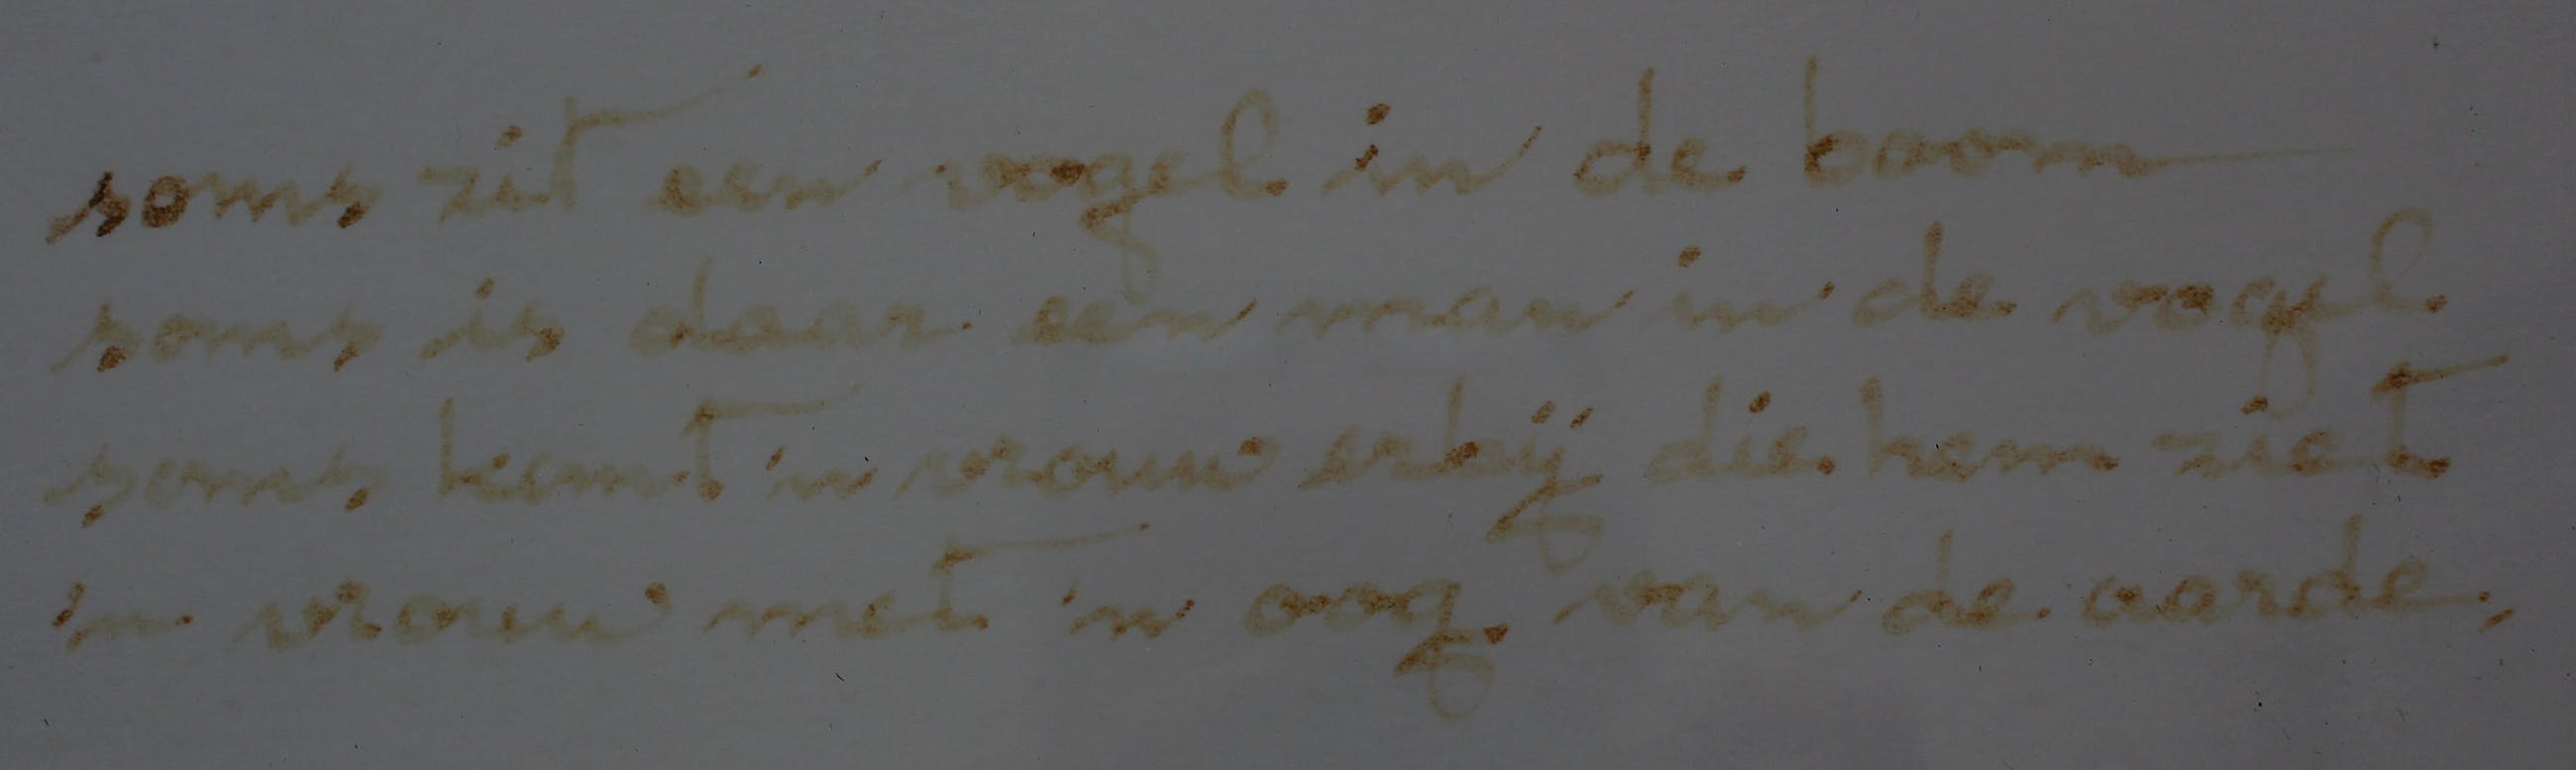 soms zit een vogel in de boom
soms is daar een man in de vogel
soms komt 'n vrouw erbij die hem ziet
'n vrouw met 'n oog van de aarde,